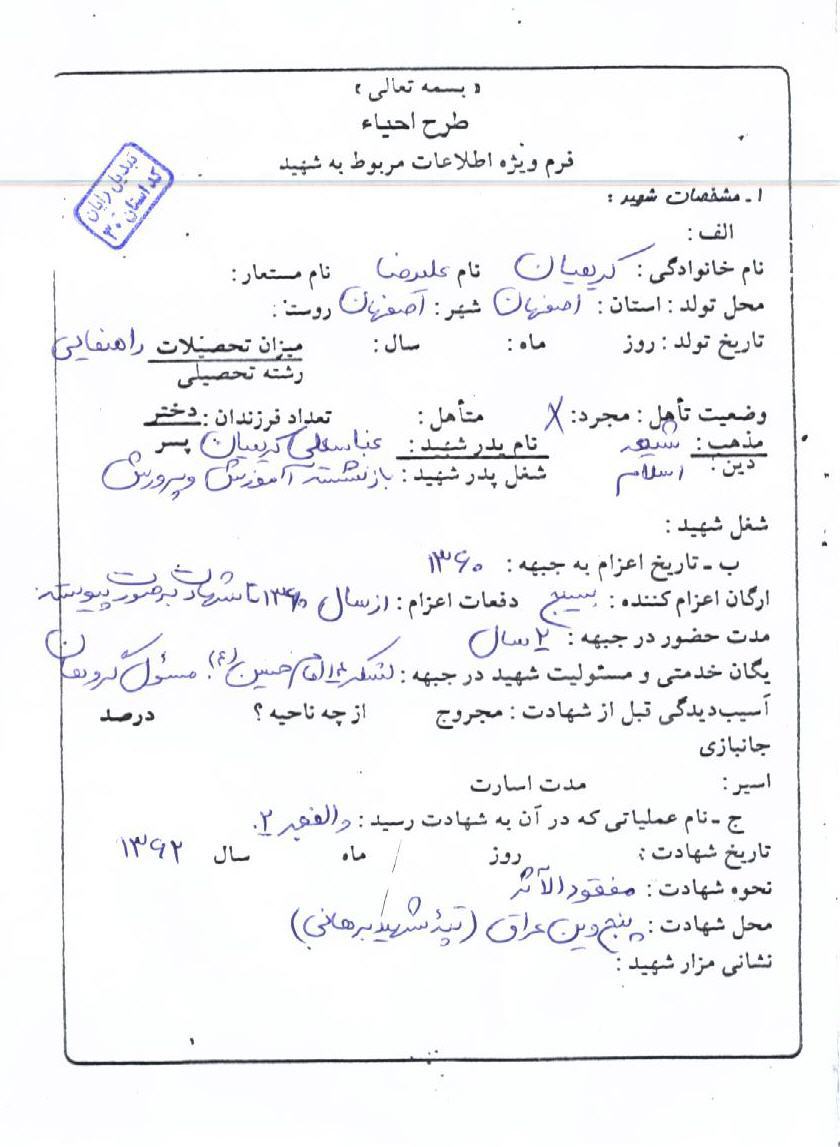 « بسمه تعالی »
طرح احیاء
فرم ویژه اطلاعات مربوط به شهید
تبدیل رایان
کد استان ۳۰
۱ـ مشخصات شهید :
الف :
نام خانوادگی : کریمیان نام علیرضا نام مستعار :
محل تولد : استان : اصفهان شهر : اصفهان روستا :
تاریخ تولد : روز ماه : سال : میزان تحصیلات راهنمایی
رشته تحصیلی
وضعیت تأهل : مجرد : X متأهل : تعداد فرزندان : دختر
پسر
مذهب : شیعه نام پدر شهید : عباسعلی کریمیان
دین : اسلام شغل پدر شهید : بازنشسته آموزش و پرورش
شغل شهید :
ب ـ تاریخ اعزام به جبهه : ۱۳۶۰
ارگان اعزام کننده : بسیج دفعات اعزام : از سال ۱۳۶۰ تا شهادت بصورت پیوسته
مدت حضور در جبهه : ۲ سال
یگان خدمتی و مسئولیت شهید در جبهه : لشکر ۱۴ امام حسین (ع) مسئول گروهان
آسیب‌دیدگی قبل از شهادت : مجروح از چه ناحیه ؟ درصد
جانبازی
اسیر : مدت اسارت
ج ـ نام عملیاتی که در آن به شهادت رسید : والفجر ۲.
تاریخ شهادت : روز / ماه سال ۱۳۶۲
نحوه شهادت : مفقودالاثر
محل شهادت : پنجوین عراق (تپهٔ شهید برهانی)
نشانی مزار شهید :